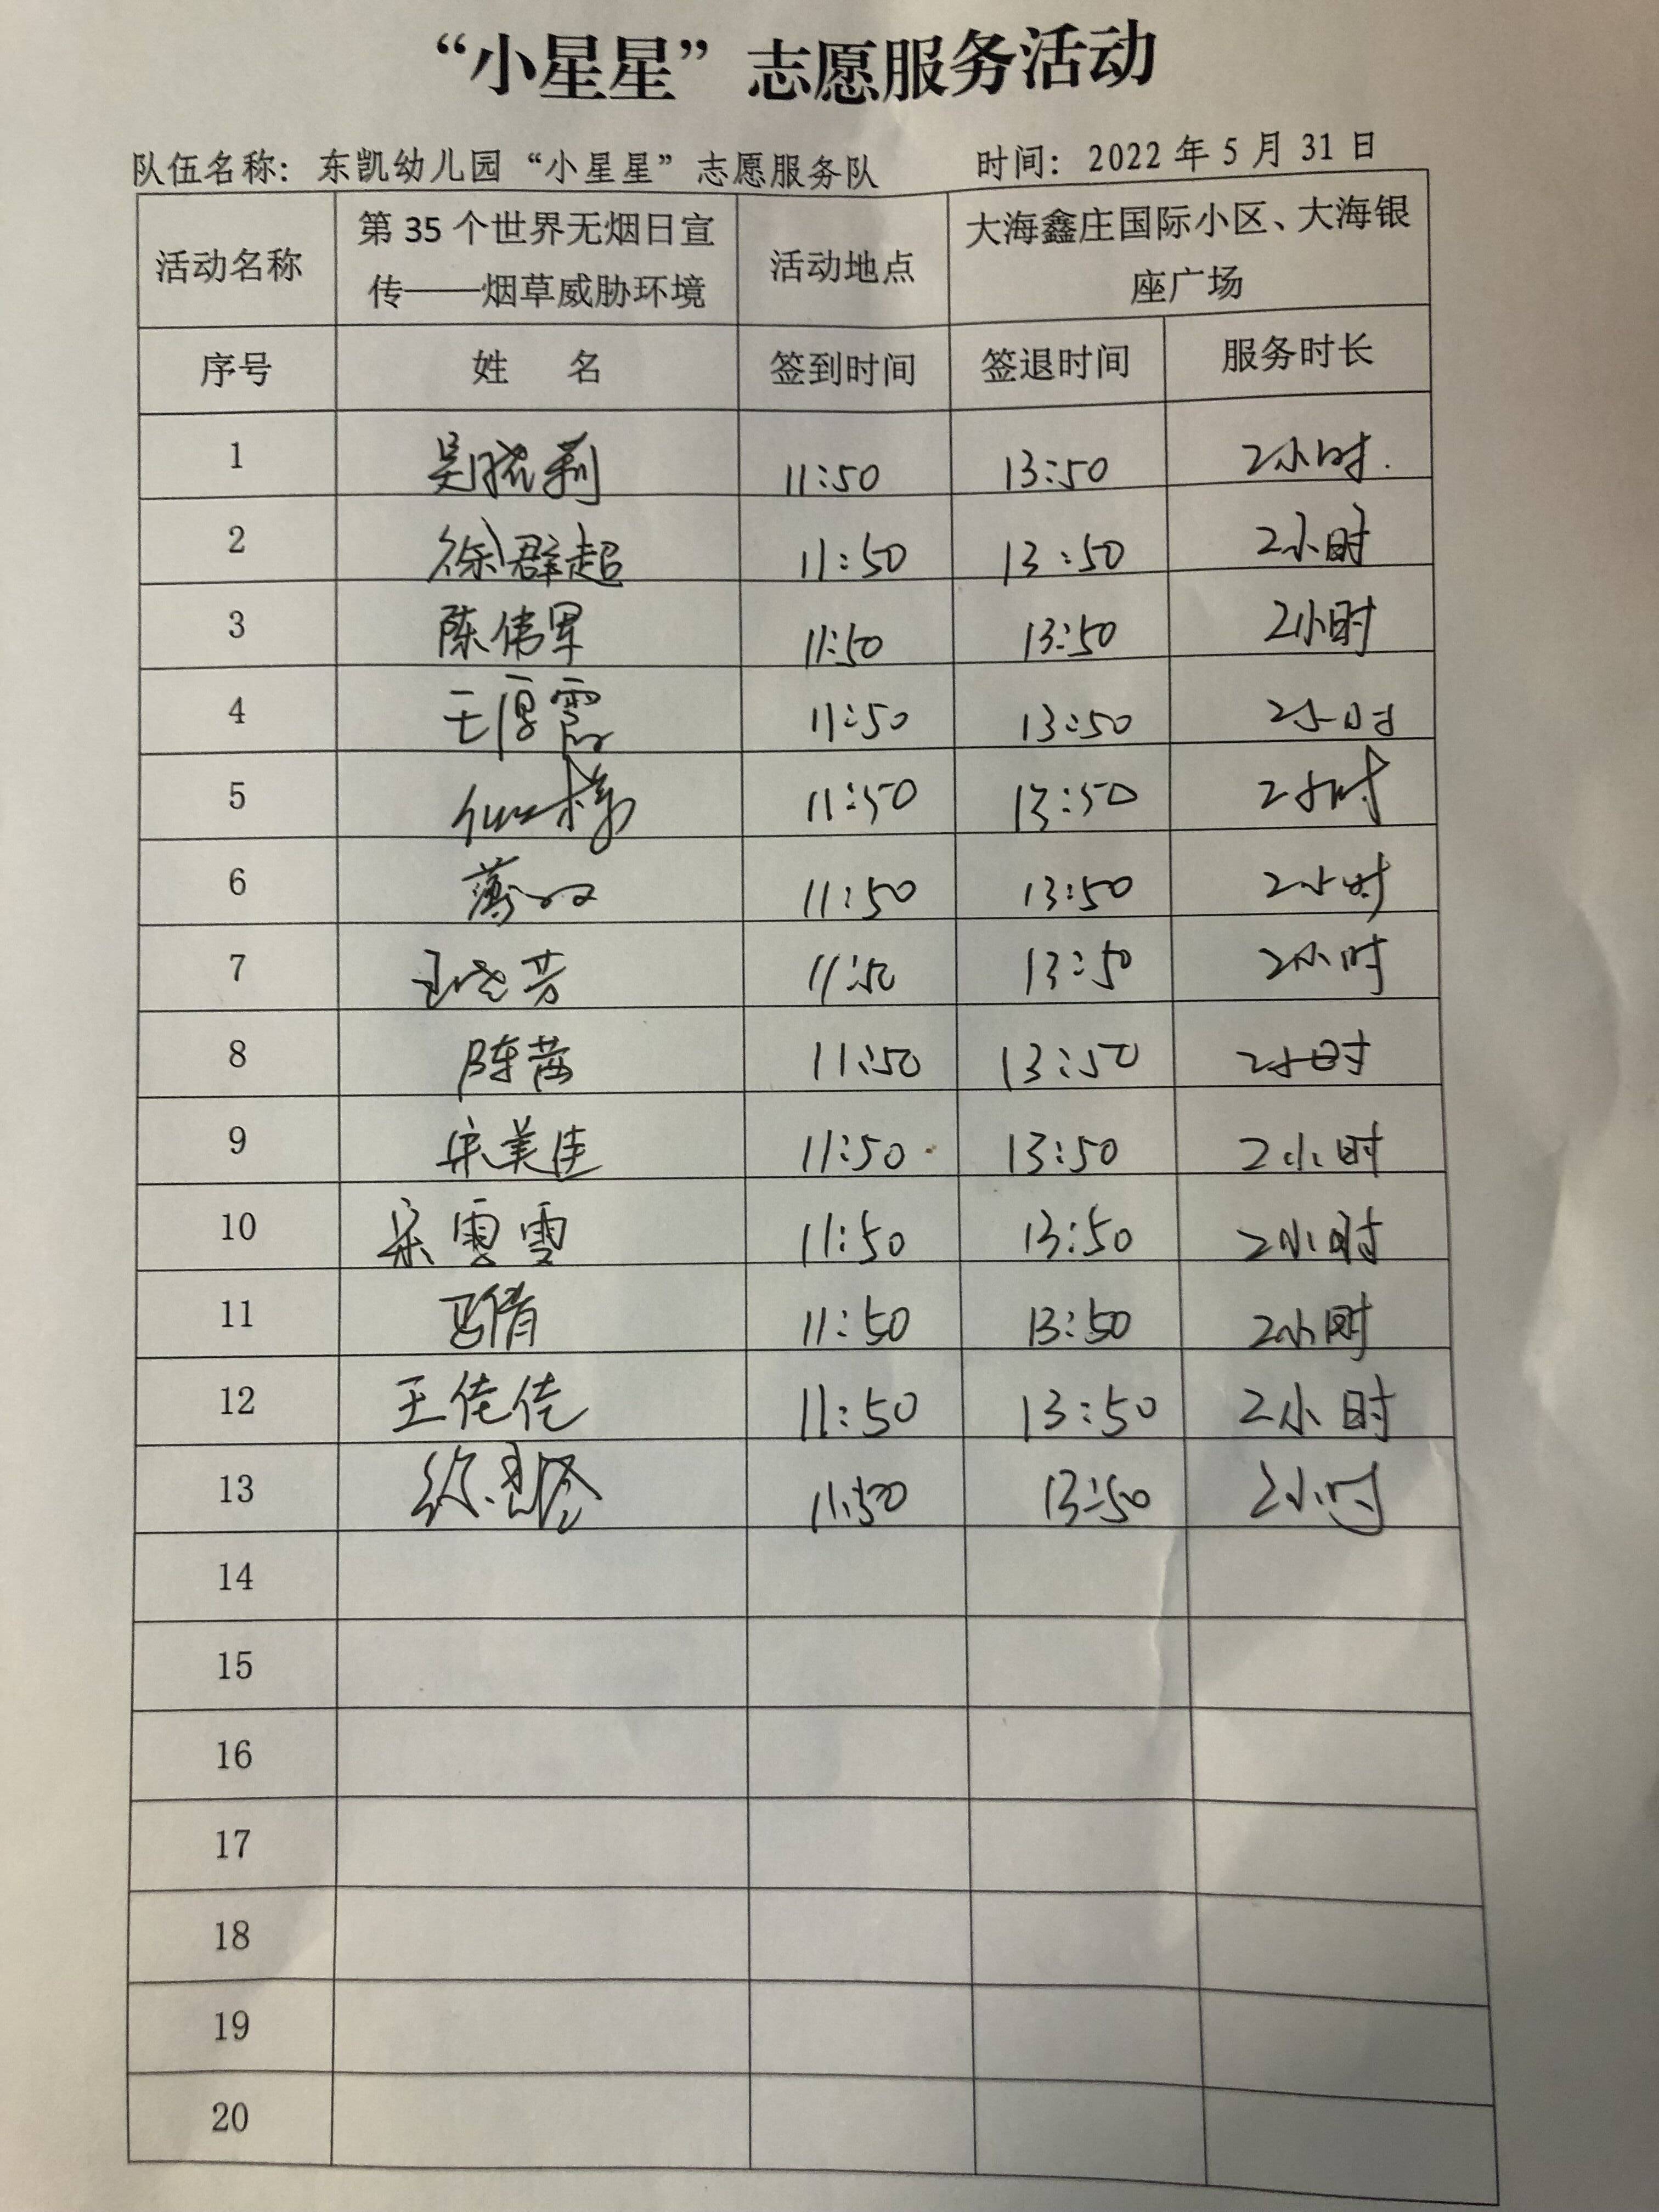 “小星星”志愿服务活动
队伍名称：东凯幼儿园“小星星”志愿服务队 时间：2022年5月31日
活动名称 第35个世界无烟日宣传——烟草威胁环境 活动地点 大海鑫庄国际小区、大海银座广场
序号 姓 名 签到时间 签退时间 服务时长
1 吴晓莉 11:50 13:50 2小时.
2 徐群超 11:50 13:50 2小时
3 陈伟军 11:50 13:50 2小时
4 王厚霞 11:50 13:50 2小时
5 11:50 13:50 2小时
6 11:50 13:50 2小时
7 王晓芳 11:50 13:50 2小时
8 陈茜 11:50 13:50 2小时
9 宋美佳 11:50 13:50 2小时
10 宋雯雯 11:50 13:50 2小时
11 马倩 11:50 13:50 2小时
12 王佳佳 11:50 13:50 2小时
13 11:50 13:50 2小时
14
15
16
17
18
19
20